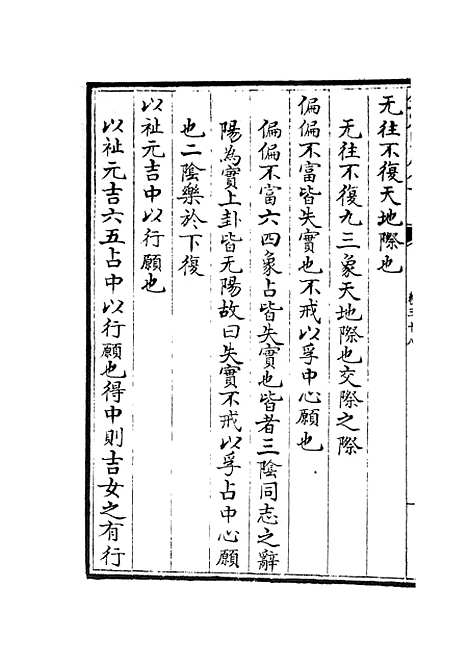 无往不復天地際也
无往不復九三象天地際也交際之際
偏偏不富皆失實也不戒以孚中心願也
偏偏不富六四象占皆失實也皆者三陰同志之辭
陽為實上卦皆无陽故曰失實不戒以孚占中心願
也二陰樂於下復
以祉元吉中以行願也
以祉元吉六五占中以行願也得中則吉女之有行